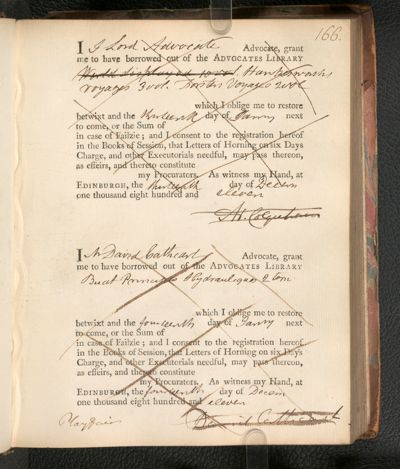 166.
I J Lord Advocate Advocate, grant
me to have borrowed out of the ADVOCATES LIBRARY
Hawkesworths
Voyages 3 vol. Forsters Voyages 2 vol
which I oblige me to restore
betwixt and the thirteenth day of Janry next
to come, or the Sum of
in case of Failzie; and I consent to the registration hereof
in the Books of Session, that Letters of Horning on six Days
Charge, and other Executorials needful, may pass thereon,
as effeirs, and thereto constitute
my Procurators. As witness my Hand, at
EDINBURGH, the thirteenth day of Decem
one thousand eight hundred and eleven
Ar. Colquhoun
I Mr David Cathcart Advocate, grant
me to have borrowed out of the ADVOCATES LIBRARY
Buat Principes d'Hydraulique 2 tom
which I oblige me to restore
betwixt and the fourteenth day of Janry next
to come, or the Sum of
in case of Failzie; and I consent to the registration hereof
in the Books of Session, that Letters of Horning on six Days
Charge, and other Executorials needful, may pass thereon,
as effeirs, and thereto constitute
my Procurators. As witness my Hand, at
EDINBURGH, the fourteenth day of Decem
one thousand eight hundred and eleven
Playfair David Cathcart